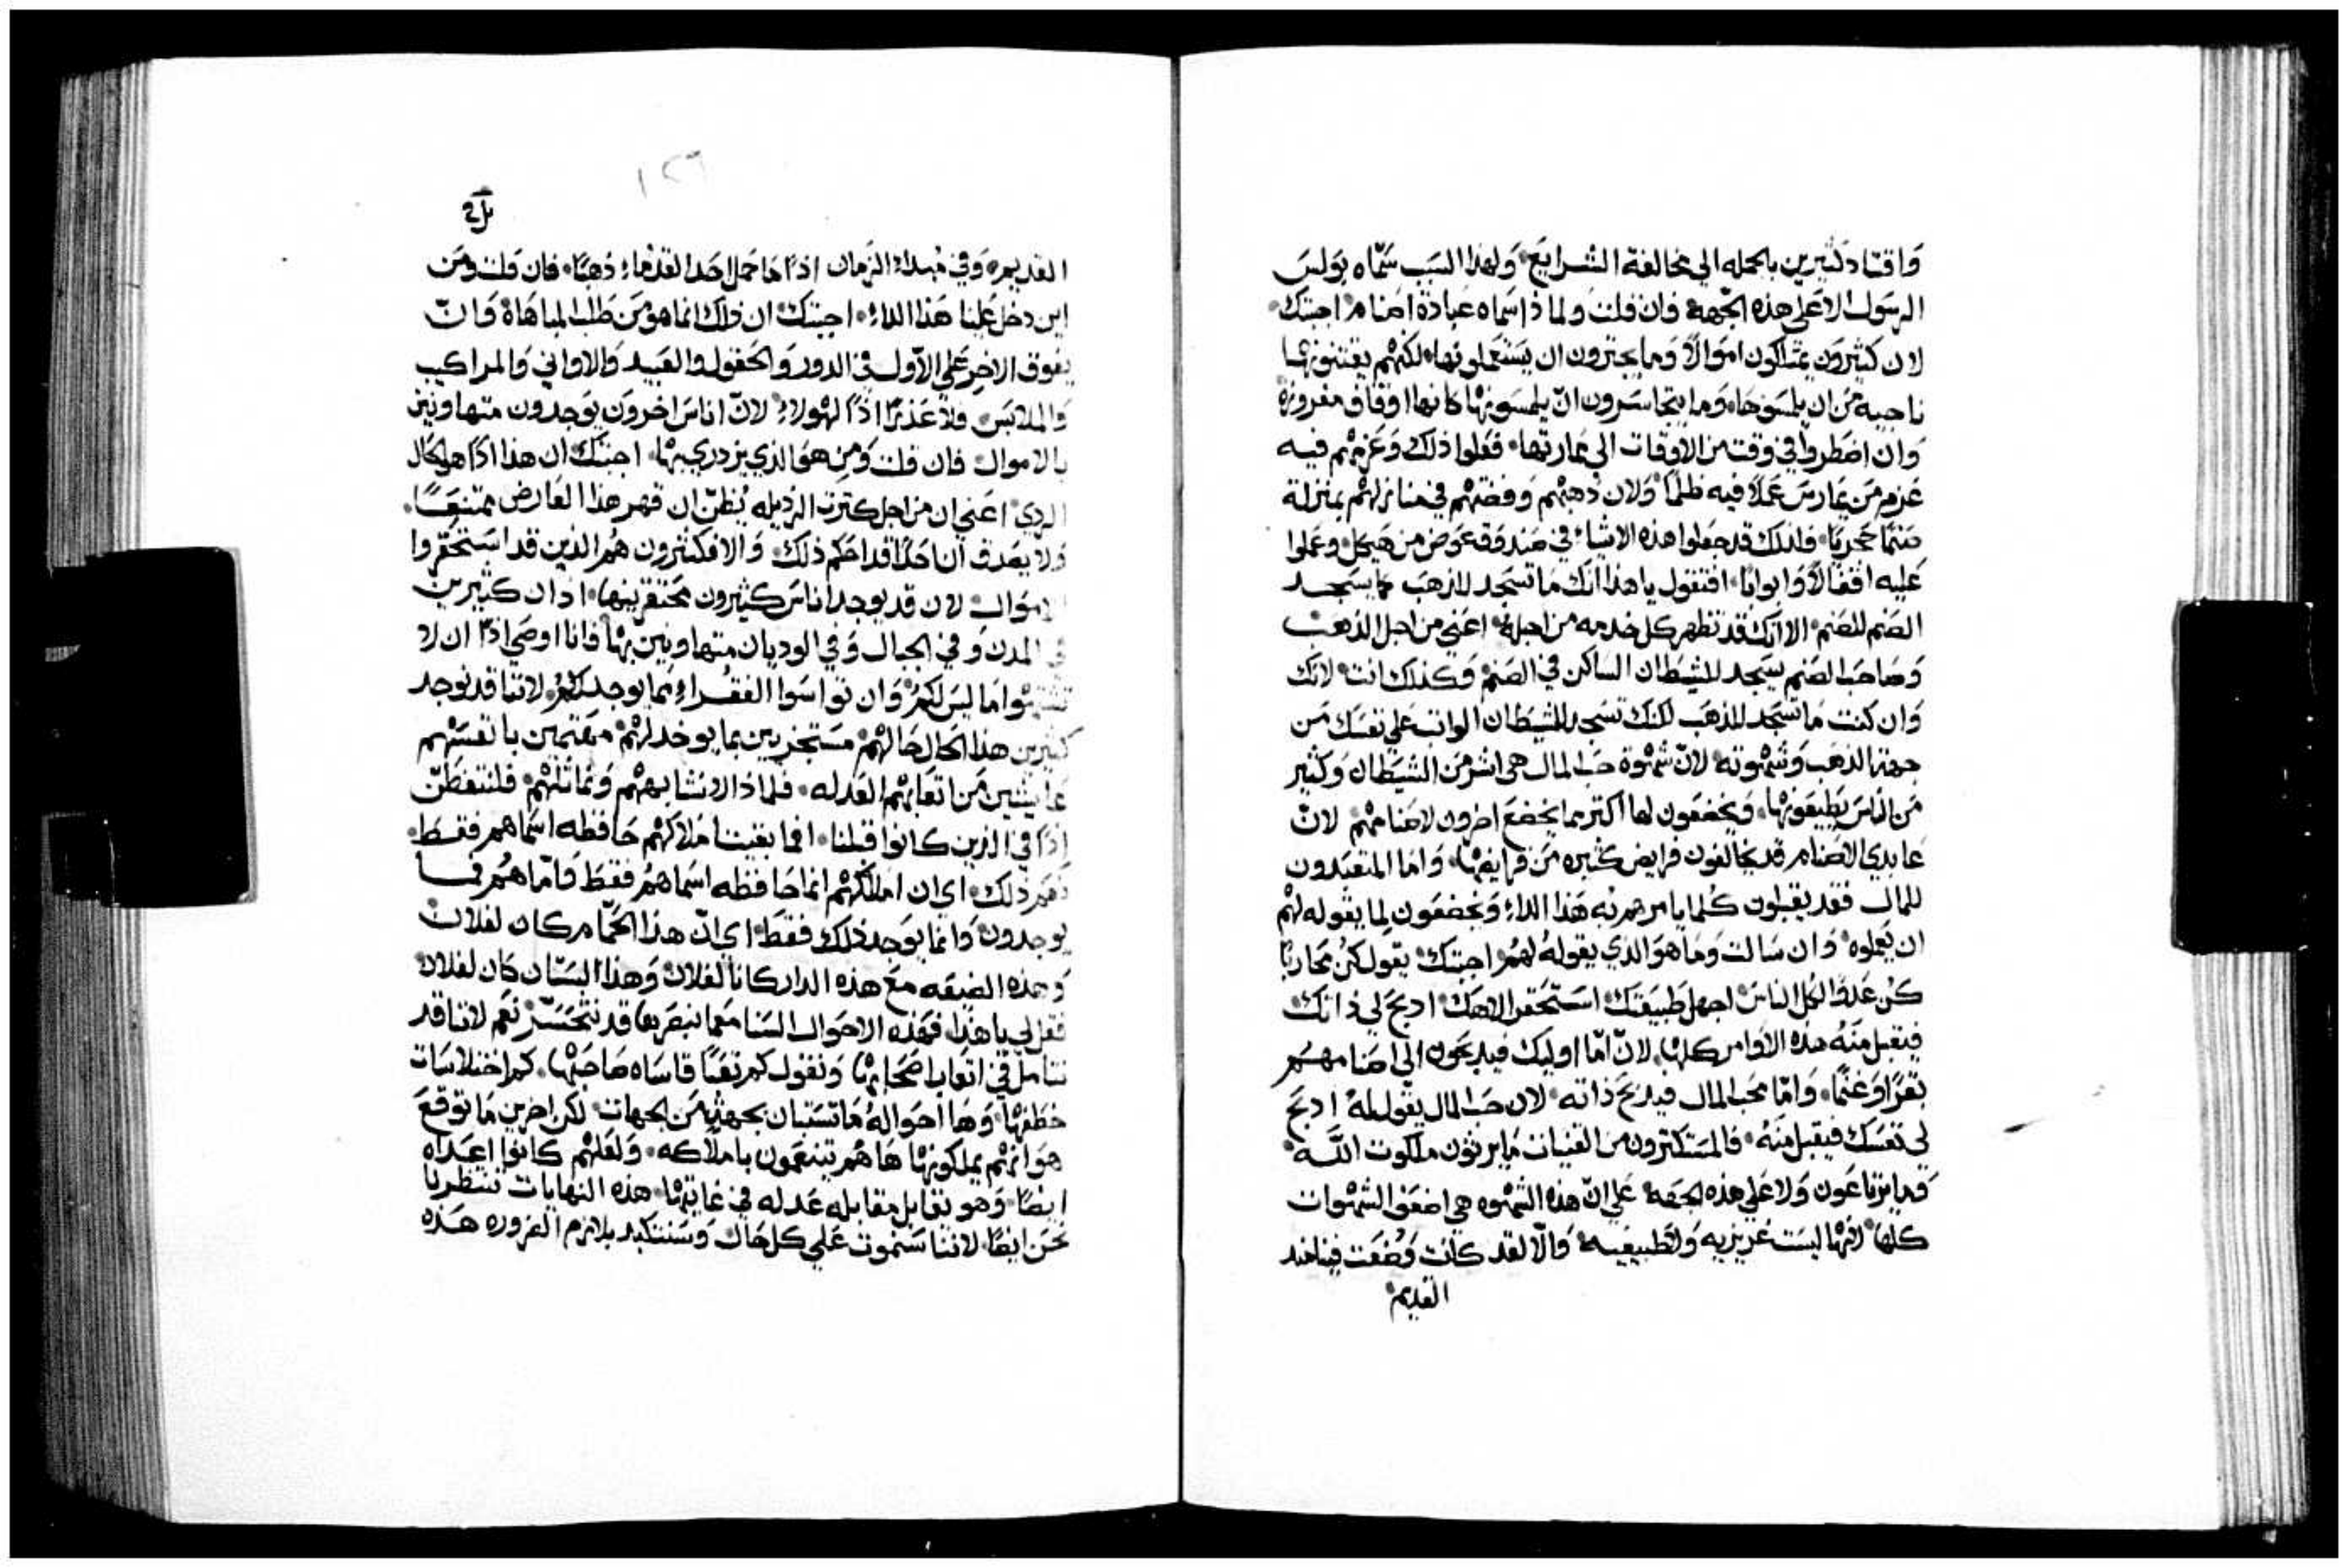 واقتاد كثيرين بالجمله الي مخالفة الشرايع، ولهذا السبب سمّاه بولس
الرسول الا على هذه الجهة فان قلت ولماذا سماه عبادة اصنام اجبتك
لان كثيرون يمتلكون اموالاً وما يجترون ان يستعملونها، لكنهم يقتنونها
ناحيه من ان يلمسوها، وما يتجاسرون ان يلمسونها كانها اوقاف مفروزة
وان اضطروا في وقت من الاوقات الي عبارتها، فعلوا ذلك وعزمهم فيه
عزم من يمارس عملاً فيه ظلماً، ولان ذهبهم وفضتهم في منازلهم بمنزلة
صنماً حجرياً، فلذلك قد جعلوا هذه الاشياء في صندوق عوض من هيكل، وعملوا
عليه اقفالاً وابواباً، افتقول يا هذا انك ما تسجد للذهب كما يسجد
الصنم للصنم، الا انك قد تظهر كل خدمه من اجله، اعني من اجل الذهب
وصاحب الصنم يسجد للشيطان الساكن في الصنم وكذلك انت، لانك
وان كنت ما تسجد للذهب لكنك تسجد للشيطان الواثب على نفسك من
جهة الذهب وشهوته، لانّ شهوة حب المال هي اشر من الشيطان وكثير
من الناس يطيعونها، ويخضعون لها اكثر مما يخضع اخرون لاصنامهم لانّ
عابدي الاصنام قد يخالفون فرايض كثيره من فرايضها، واما المتعبدون
للمال فقد يقبلون كلما يامرهم به هذا الداء ويخضعون لما يقوله لهم
ان يعملوه، وان سالت وما هو الذي يقوله لهم اجبتك، يقول كن محارباً
كن عدوا لكل الناس، اجهل طبيعتك، استحقر الاهك، ادبح لي ذاتك
فيقبل منه هذه الاوامر كلها، لانّ امّا اوليك فيدبحون الى اصنامهم
بقراً وغنماً، وامّا محب المال فيدبح ذاته، لان حب المال يقول له ادبح
لي نفسك فيقبل منه، فالمستكثرون من القنيات ما يرثون ملكوت الله
وما يرتاعون ولا على هذه الجهة، على انّ هذه الشهوه هي اضعف الشهوات
كلها، لانها ليست غريزيه ولا طبيعيه، والاّ لقد كانت وضعت فينا منذ
القديم
١٢٩
القديم، وفي مبداء الزمان اذاً ما حمل احد القدماء ذهباً، فان قلت ومن
اين دخل علينا هذا الداء، اجبتك ان ذلك انما هو من طلب المباهاة وانّ
يفوق الاخر على الاول في الدور والحقول والعبيد والاواني والمراكيب
والملابس، فلا عذراً اذاً لهولاء لانّ اناس اخرون يوجدون متهاونين
بالاموال، فان قلت ومن هو الذي يزدري بها، اجبتك ان هذا اذاً هو الحال
الردي، اعني ان من اجل كترت الرذيله يُظن ان قهر هذا العارض ممتنعاً
ولا يصدق ان احداً قد احكم ذلك، والا فكثيرون هم الذين قد استحقروا
الاموال لان قد يوجد اناس كثيرون محتقرينها، اذ ان كثيرين
في المدن وفي الجبال وفي الوديان متهاونين بها فانا اوصي اذاً ان لا
تشتهوا ما ليس لكم، وان تواسوا الفقراء بما يوجد لكم، لاننا قد نوجد
كثيرين هذا الحال حالهم، مستجزيين بما يوخد لهم، مهتمين بانفسهم
عايشين من اتعابهم العدله، فلماذا لا نشابههم ونماثلهم، فلنتفطّن
اذاً في الذين كانوا قبلنا، افما بقيت املاكهم حافظه اسماهم فقط
نعم ذلك، اي ان املاكهم انما حافظه اسماهم فقط فامّا هم فما
يوجدون، وانما يوجد ذلك فقط، اي انّ هذا الحمّام كان لفلان
وهذه الضيعه مع هذه الدار كانا لفلان وهذا البستان كان لفلان
فقل لي يا هذا، فهذه الاحوال السنا معما نبصرها قد نتحسّر نعم لاننا قد
نتامل في اتعاب اصحابها ونقول كم تعباً قاساه صاحبها، كم اختلاسات
خطفها، وها احواله ما تستبان بجهة من الجهات، لكن اخرين ما توقع
هو انهم يملكونها ها هم يتنعمون باملاكه، ولعلهم كانوا اعداه
ايضاً، وهو يقابل مقابله عدله في غايتها، هذه النهايات تنتظرنا
نحن ايضاً، لاننا سنموت على كل حال وسنتكبد بلازم الضروره هذه